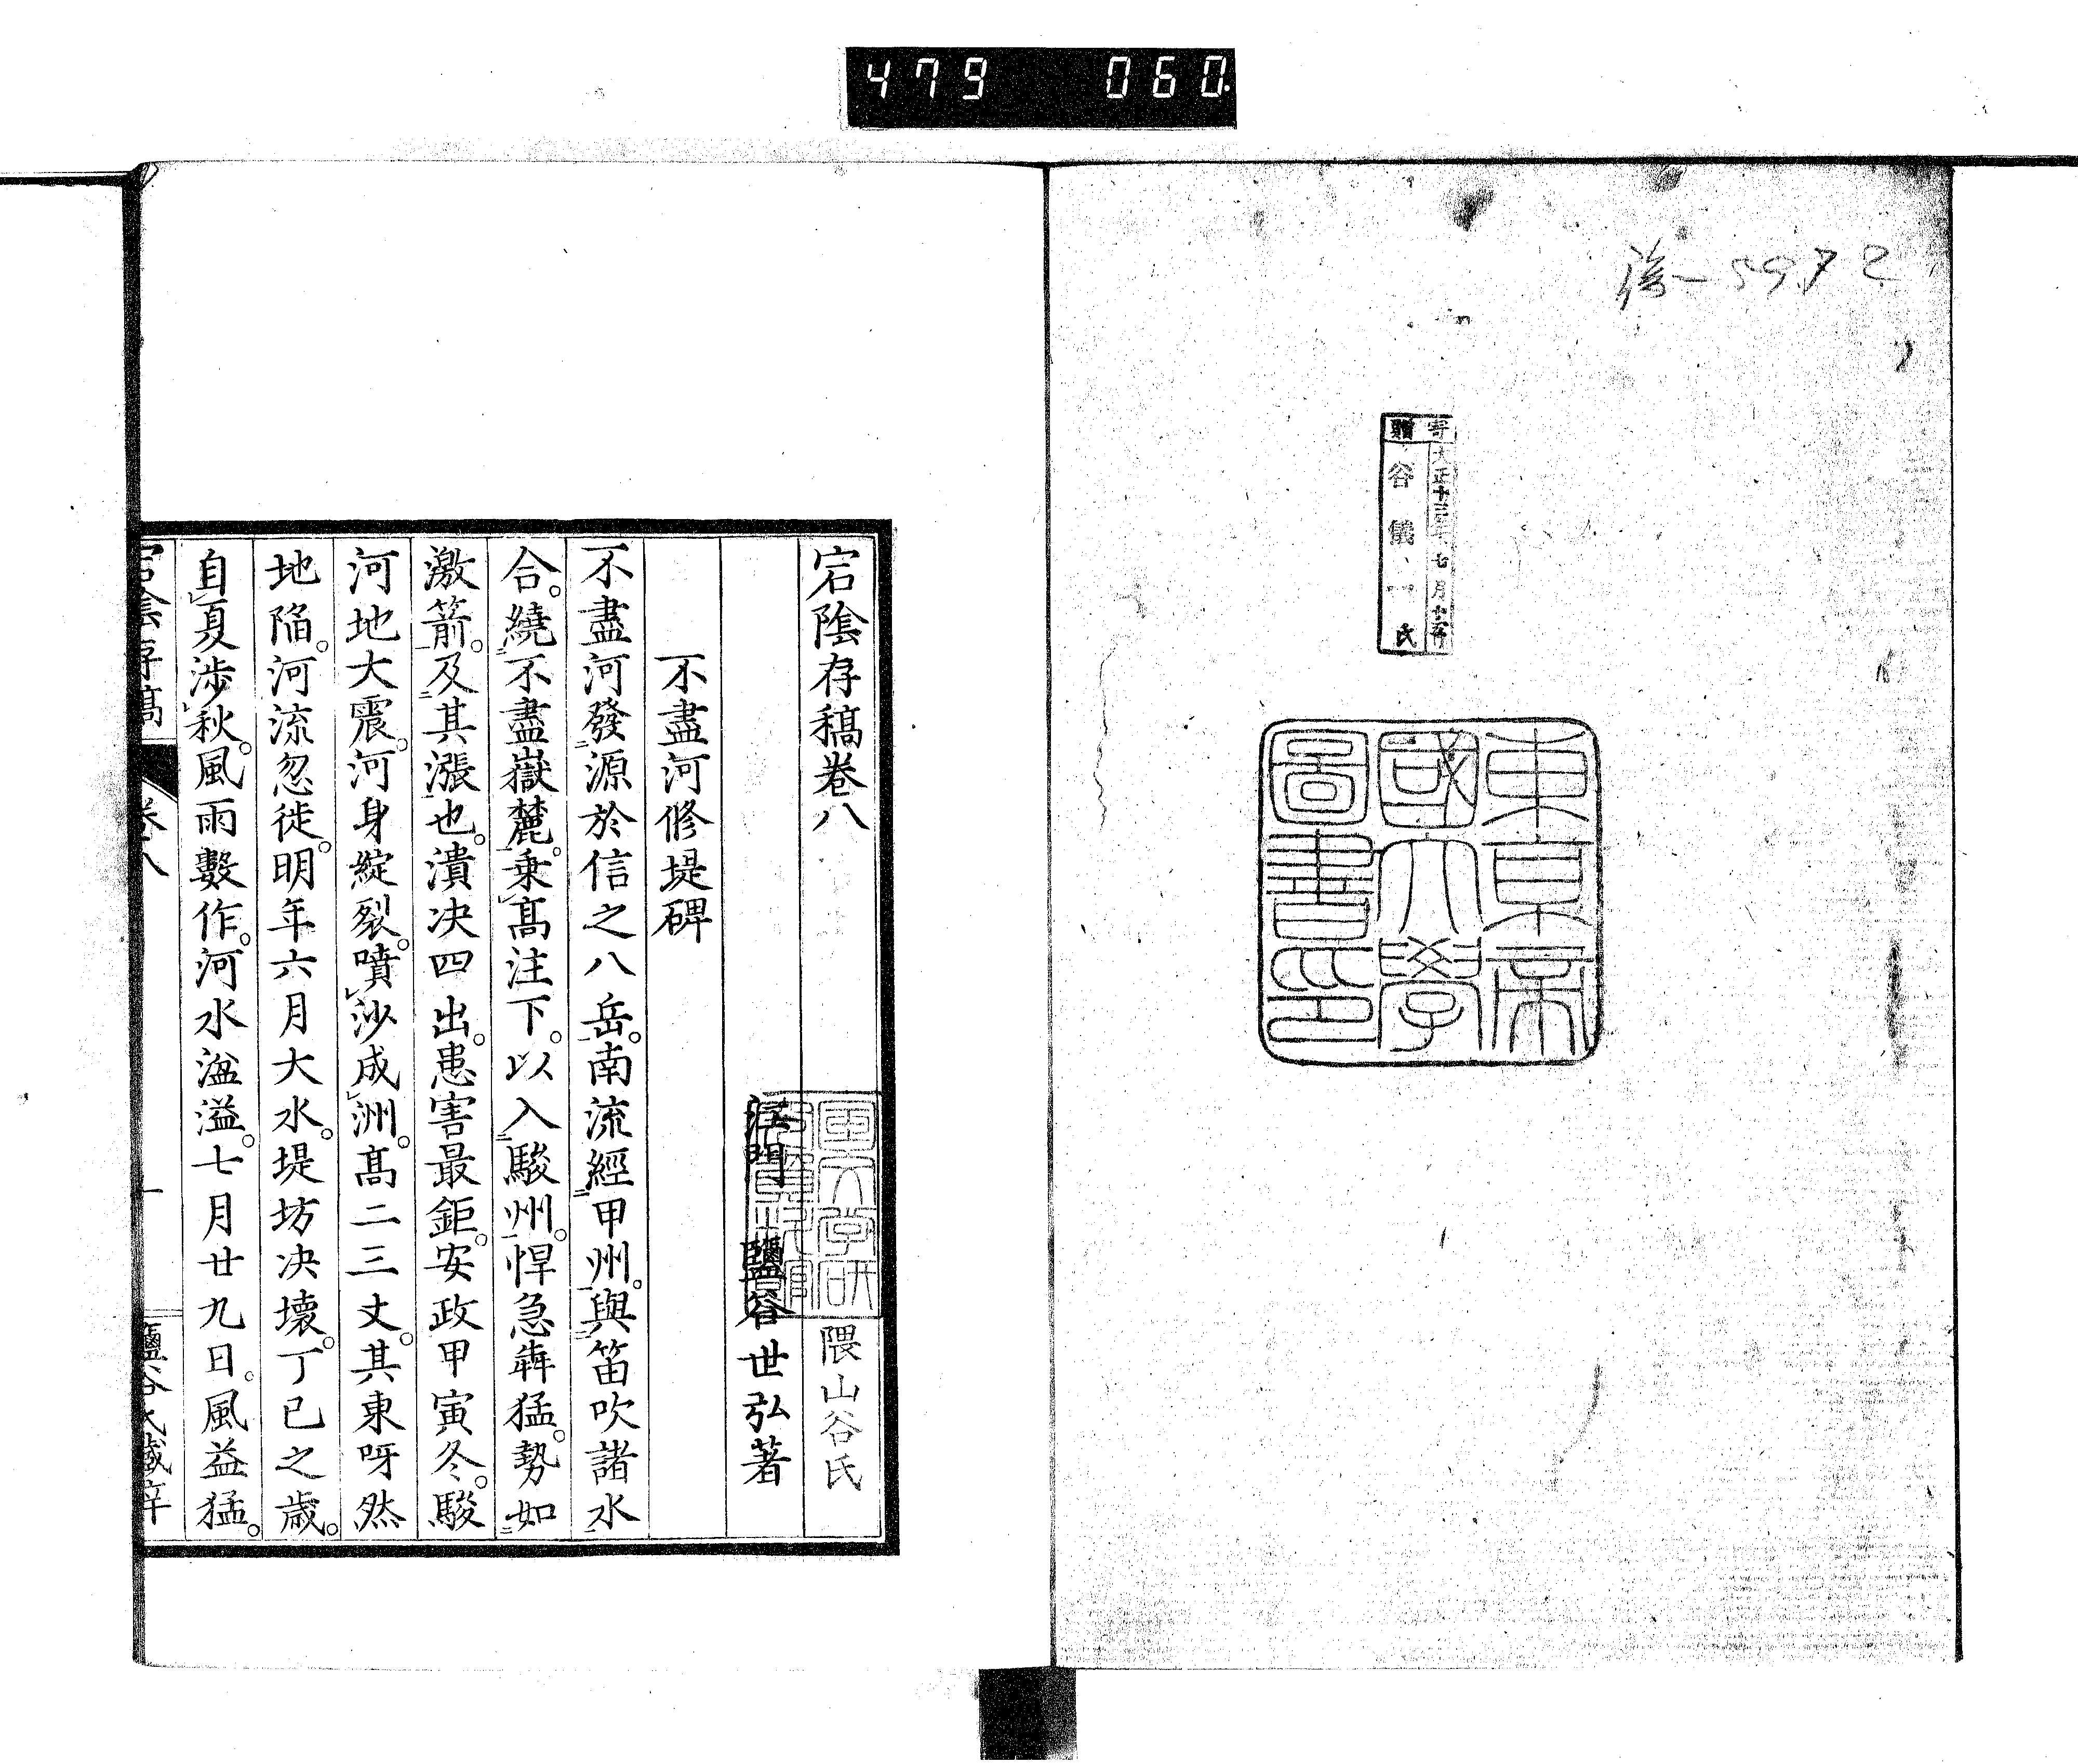 479 060
徐一5972
寄贈
大正十三年七月十五日
谷儀一氏
東京帝
國大學
圖書印
宕陰存稿卷八
隈山谷氏
江門 鹽谷世弘著
不盡河修堤碑
不盡河發源於信之八岳。南流經甲州。與笛吹諸水
合。繞不盡嶽麓。乗高注下。以入駿州。悍急犇猛。勢如
激箭。及其漲也。潰决四出。患害最鉅。安政甲寅冬。駿
河地大震。河身綻裂。噴沙成洲。高二三丈。其東呀然
地陷。河流忽徙。明年六月大水。堤坊决壞。丁巳之歳。
自夏渉秋。風雨數作。河水湓溢。七月廿九日。風益猛。
宕陰存稿 卷八 一 鹽谷氏藏梓